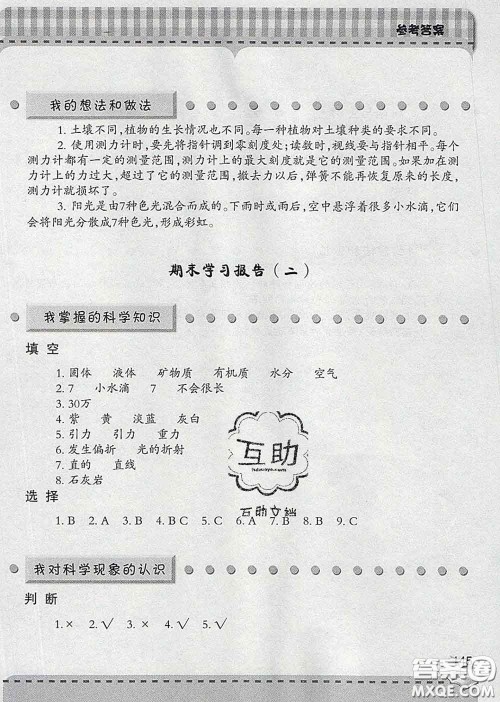 参考答案
我的想法和做法
1. 土壤不同,植物的生长情况也不同。每一种植物对土壤种类的要求不同。
2. 使用测力计时,要先将指针调到零刻度处;读数时,视线要与指针相平。每个
测力计都有一定的测量范围,测力计上的最大刻度就是它的测量范围。如果在测力
计上的力过大,超过了它的测量范围,撤去力以后,弹簧不能再恢复原来的长度,测
力计就损坏了。
3. 阳光是由7种色光混合而成的。下雨时或雨后,空中悬浮着很多小水滴,它们
会将阳光分散成7种色光,形成彩虹。
期末学习报告(二)
我掌握的科学知识
填 空
1. 固体 液体 矿物质 有机质 水分 空气
2. 7 小水滴 7 不会很长
3. 30万
4. 紫 黄 淡蓝 灰白
5. 引力 引力 重力
6. 发生偏折 光的折射
7. 直的 直线
8. 石灰岩
互助
互助文档
选择
1. B 2. A 3. B 4. BC 5. C 6. A 7. B 8. B 9. C
我对科学现象的认识
判 断
1. × 2. √ 3. × 4. √ 5. √
答案圈
MXQE.COM